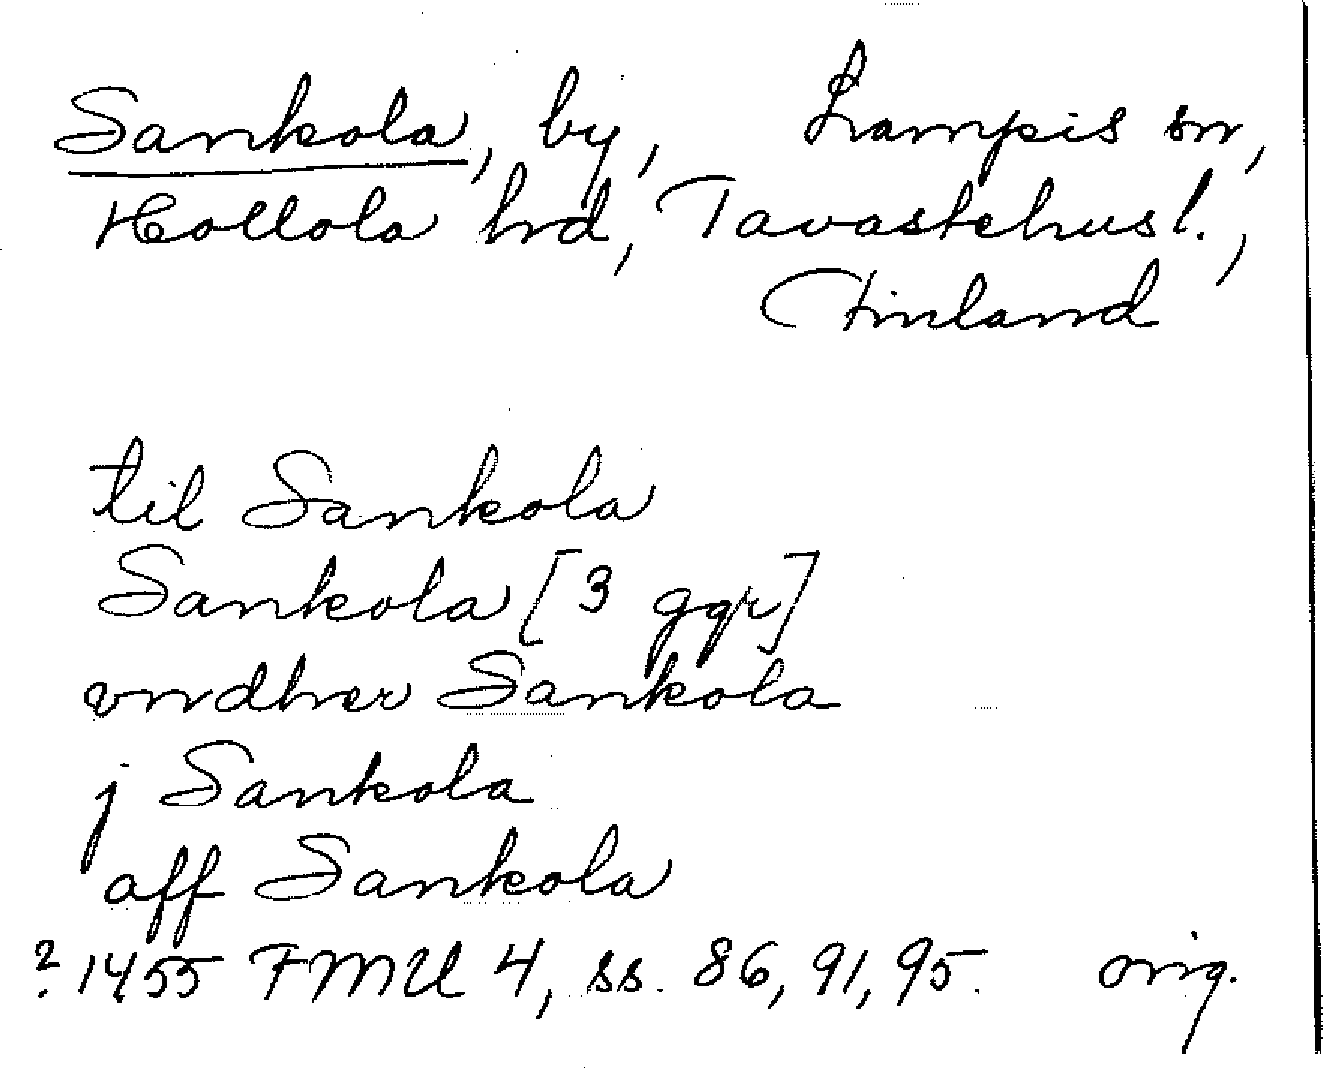 Sankola, by, Lampis sn,
Hollola hrd, Tavastehus l.,
Finland
til Sankola
Sankola [3 ggr]
vndher Sankola
j Sankola
aff Sankola
?1455 FMU 4, ss. 86, 91, 95. orig.